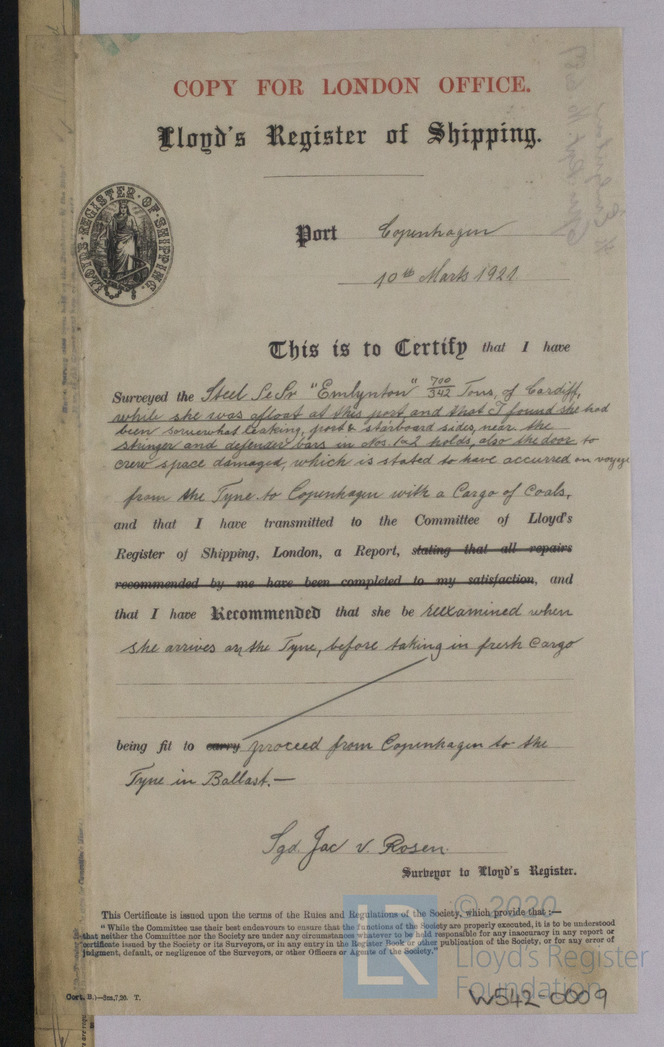 COPY FOR LONDON OFFICE.
Lloyd's Register of Shipping.
LLOYDS REGISTER OF SHIPPING
Port Copenhagen
10th Marts 1921
This is to Certify that I have
Surveyed the Steel Sc Sr "Emlynton" 700/342 Tons, of Cardiff,
while she was afloat at this port and that I found she had
been somewhat leaking, port & starboard sides, near the
stringer and defender bars in Nos. 1-2 holds, also the door to
crew space damaged, which is stated to have occurred on voyage
from the Tyne to Copenhagen with a Cargo of Coals,
and that I have transmitted to the Committee of Lloyd's
Register of Shipping, London, a Report, stating that all repairs
recommended by me have been completed to my satisfaction, and
that I have Recommended that she be reexamined when
she arrives on the Tyne, before taking in fresh Cargo
being fit to carry proceed from Copenhagen to the
Tyne in Ballast.—
Sgd. Jac v. Rosen
Surveyor to Lloyd's Register.
This Certificate is issued upon the terms of the Rules and Regulations of the Society, which provide that :—
"While the Committee use their best endeavours to ensure that the functions of the Society are properly executed, it is to be understood
that neither the Committee nor the Society are under any circumstances whatever to be held responsible for any inaccuracy in any report or
certificate issued by the Society or its Surveyors, or in any entry in the Register Book or other publication of the Society, or for any error of
judgment, default, or negligence of the Surveyors, or other Officers or Agents of the Society."
Cert. B.)—5m,7,20. T.
© 2020
LR
Lloyd's Register
Foundation
W542-0009